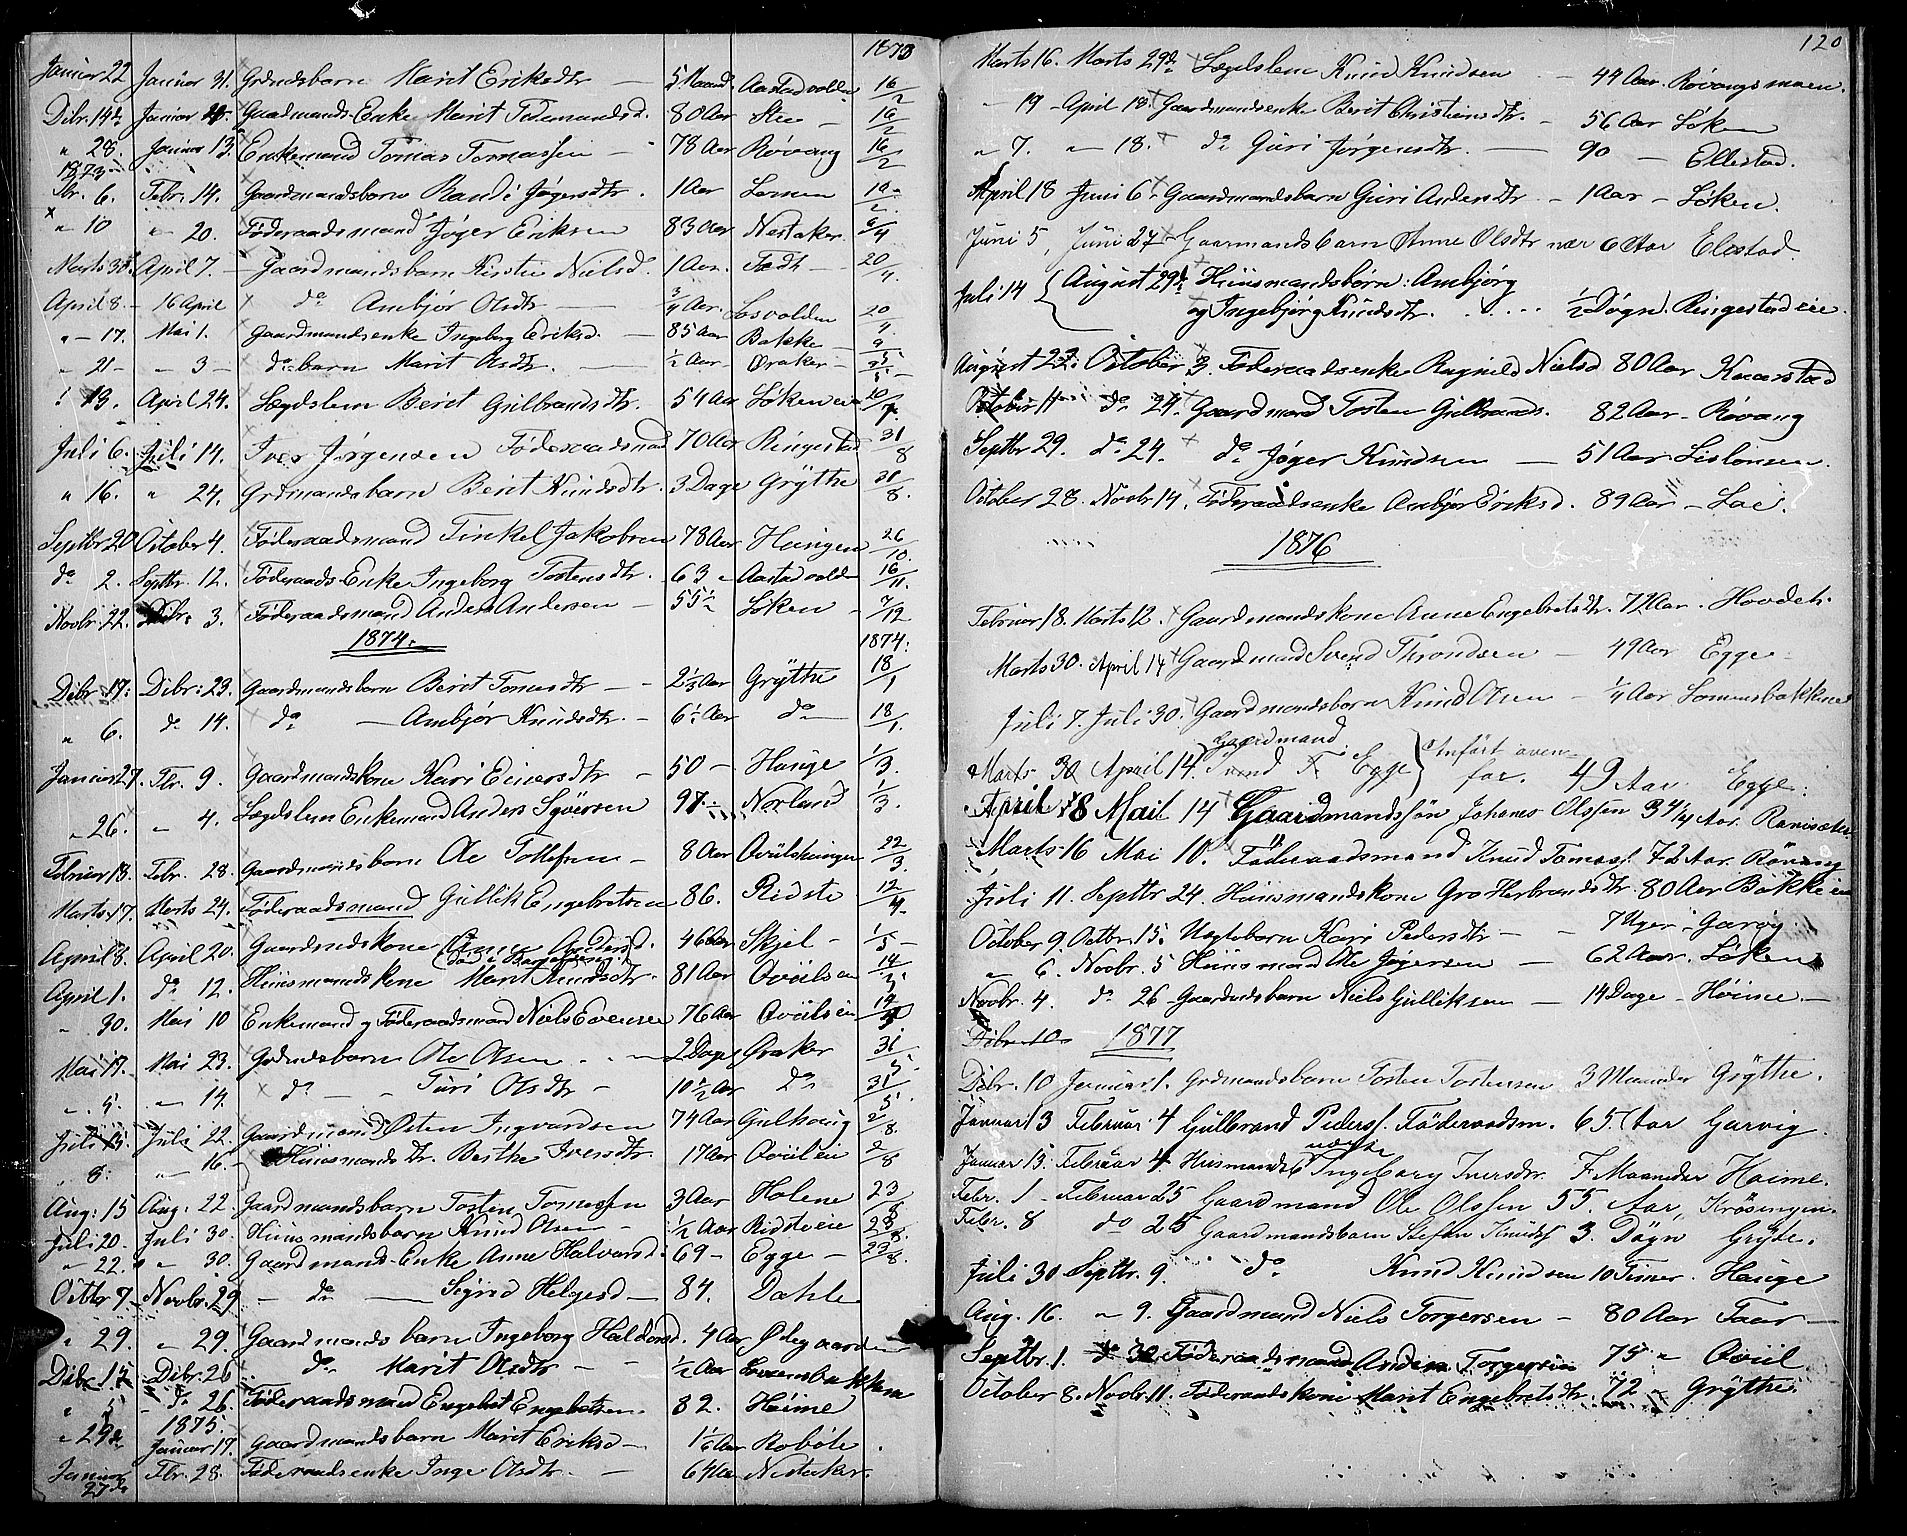 1873
Januar 22 Januar 31. Grdmdsbarn Marit Eriksdtr — 5 Maand. Aastadvolden 16/2
Dcbr. 14de Januar Gaardmands Enke Marit Tidemandsd. 80 Aar Skee — 16/2
" 28 Januar 13 Enkemand Tomas Tomassen — 78 Aar Røvang 16/2
1873
Fbr. 6. Febr. 14. Gaardmandsbarn Randi Jøgersdtr. 1 Aar Lomen
" 10 " 20. Føderaadsmand Jøger Eriksen 83 Aar Nestaker 6/4
Marts 30 April 7. — Gaardmandsbarn Kirstie Nielsd. 1 Aar. Fadt — 20/4
April 8. — 16 April do Ambjør Olsdtr — 3/4 Aar. Losvolden 20/4
" — 17. Mai 1. Gaardmandsenke Ingeborg Eriksd. — 85 Aar Bakke —
— 21 — — 3 — do barn Marit Olsdtr. — 1/2 Aar Øraker —
13. April 24. Lægdslem Berit Gulbrandsdtr. 54 Aar Løkeneie
Juli 6. Juli 14. Iver Jørgensen Føderaadsmad 70 Aar Ringestad 31/8
" 16. " 24. Grdmandsbarn Berit Knudsdtr. 3 Dage Grÿthe 31/8.
Septbr 20 October 4. Føderaadsmand Tinkel Jakobsen 78 Aar Haugen 26/10.
do 2. Septbr. 12. Føderaads Enke Ingeborg Tostensdtr. 63 " Aastadvolden 16/11.
Novbr. 22. Dcbr. 3. Føderaadsmand Anders Andersen — 55 1/2 Løken — 7/12
1874. 1874:
Dcbr. 17: Dcbr: 23. Gaardmandsbarn Berit Tomasdtr — — 2 1/3 Aar Grÿthe 18/1
" 6. do 14. do — Ambjør Knudsdtr. — 6 1/2 Aar do — 18/1.
Januar 27. Fbr. 9. Gaardmandskone Kari Einersdtr — 50 — Hauge 1/3.
" 26. " 4. Lægdslem Enkemand Anders Syversen 97 1/2 Norland 1/3.
Februar 13. Febr. 28. Gaardmandsbarn Ole Tollefsen — 8 Aar Qvålshaugen 22/3.
Marts 17. Marts 24. Føderaadsmand Gullik Engebretsen 86. Ridste 12/4.
April 8. April 20. Gaardmdskone Anne Andersd. 46 Aar Skjel — 1/5 —
April 1. do 12. Huusmandskone Marit Knudsdtr. 81 Aar Qvålseie
" 30. Mai 10 Enkemand og Føderaadsmand Niels Evensen 76 Aar Qvåleie 14/5
Mai 17. Mai 23. Grdmdsbarn Ole Olsen . . — 2 Dage Øraker 31/5.
" 5. " 14. do — — Turi Olsdtr — 10 1/2 Aar do 31/5
Juli Juli 22. Gaardmand Østen Ingvardsen 74 Aar Gulhaug 2/8.
" 8. " 16. — Huusmandsdtr. Berthe Iversdtr 17 Aar Qvåleie 2/8
Aug: 15 Aug: 22. Gaardmandsbarn Tosten Tomassen 3 Aar Holene 23/8
Juli 20. Juli 30. Huusmandsbarn Knud Olsen — 1/2 Aar Ridsteeie 23/8.
" 22. " 30. Gaardmands Enke Anne Halvorsd. 69 — Egge — 23/8.
Octbr 7. Novbr. 29 — do — Sigrid Helgesd — 84. Dahle
" 29. " 29. Gaardmandsbarn Ingeborg Haldorsd. 4 Aar Ødegaarden
Dcbr. 15 Dcbr. 26 do Marit Olsdtr — — 1/2 Aar Lomensbakken
" 5 — do 26. Føderaadsmand Engebret Engebretsen. 82. Høime
1875.
" 29de Januar 17. Gaardmandsbarn Marit Eriksd — 1 1/6 Aar Robøle .
Januar 27de Fbr. 28. Føderaadsenke Inge Olsdtr. — 64 Aar Nestaker.
120
Marts 16. Marts 29de Lægdslem Knud Knudsen — 44 Aar. Røvangsmoen.
" 19 April 18. Gaardmandsenke Berit Christiansdtr. — 56 Aar Løken
" 7. " 18. do Guri Jørgensdtr. — 90 — Ellestad.
April 18 Juni 6. Gaardmandsbarn Guri Andersdtr — 1 Aar — Løken.
Juni 5, Juni 27 — Gaarmandsbarn Anne Olsdtr nær 6 Aar Elestad.
Juli 14 { August 29de Huusmandsbørn: Ambjørg
og Ingebjørg Knudsdtr. . . . . 1/2 Døgn. Ringestadeie.
August 22. October 3. Føderaadsenke Ragnild Nielsd 80 Aar Kvarstad
October 11 do 24. Gaardmand Tosten Gulbrands. 82 Aar — Røvang
Septbr 29. do 24. do Jøger Knudsen — 51 Aar. Lislomsen.
October 28. Novbr. 14. Føderaadsenke Ambjør Eriksd. 89 Aar — Loe.
1876
Februar 18. Marts 12. Gaardmandskone Anne Engebretsdtr. 72 Aar. Hovdet.
Marts 30. April 14 Gaardmand Svend Throndsen — 49 Aar Egge —
Juli 7. Juli 30. Gaardmandsbarn Knud Olsen — 1/4 Aar Lomensbakken
Gaardmand
Marts 30 April 14. Svend T. Egge } Anført oven-
for. 49 Aar Egge.
April 18 Mail 14 Gaardmandssøn Johanes Olssen 34 1/4 Aar. Ranisæter
Marts 16 Mai 10. Föderaadsmand Knud Tomass. 72 Aar. Røvang
Juli 11. Septbr 24. Huusmandskone Gro Herbrandsdtr. 80 Aar Bakkeeie
October 9. Octbr. 15. Uægtebarn Kari Pedersdtr — — 7 Uger. Garvig
" 6. Novbr. 5 Huusmand Ole Jøgersen — 62 Aar. Løken
Novbr. 4. do 26 Gaardmdsbarn Niels Gulliksen — 14 Dage — Høime —
Dcbr. 10 1877
Dcbr. 10 Januar 1. Grdmandsbarn Tosten Tostensen 3 Maaneder Grÿthe.
Januar 3 Februar 4 Gulbrand Peders. Föderaadsm. 65 Aar Garvig.
uægte
Januar 15. Februar 4 Husmands Ingeborg Iversdtr. 7 Maaneder Høime.
Febr. 1 — Februar 25 Gaardmand Ole Olssen 55. Aar, Krösingen.
Febr. 8 do 25 Gaardmandsbarn Stefen Knuds 3. Dögn Gryte.
Juli 30 Septbr. 9. do Knud Knudsen 10 Timer. Hauge
Aug. 16. " 9. Gaardmand Niels Torgersen — 80 Aar Faar —
Septbr. 1. do 30 Føderaadsmand Anders Torgersen 75 " Qvål
October 8. Novbr. 11. Føderaadskone Marit Engebretsdtr. 72 — Grÿthe.